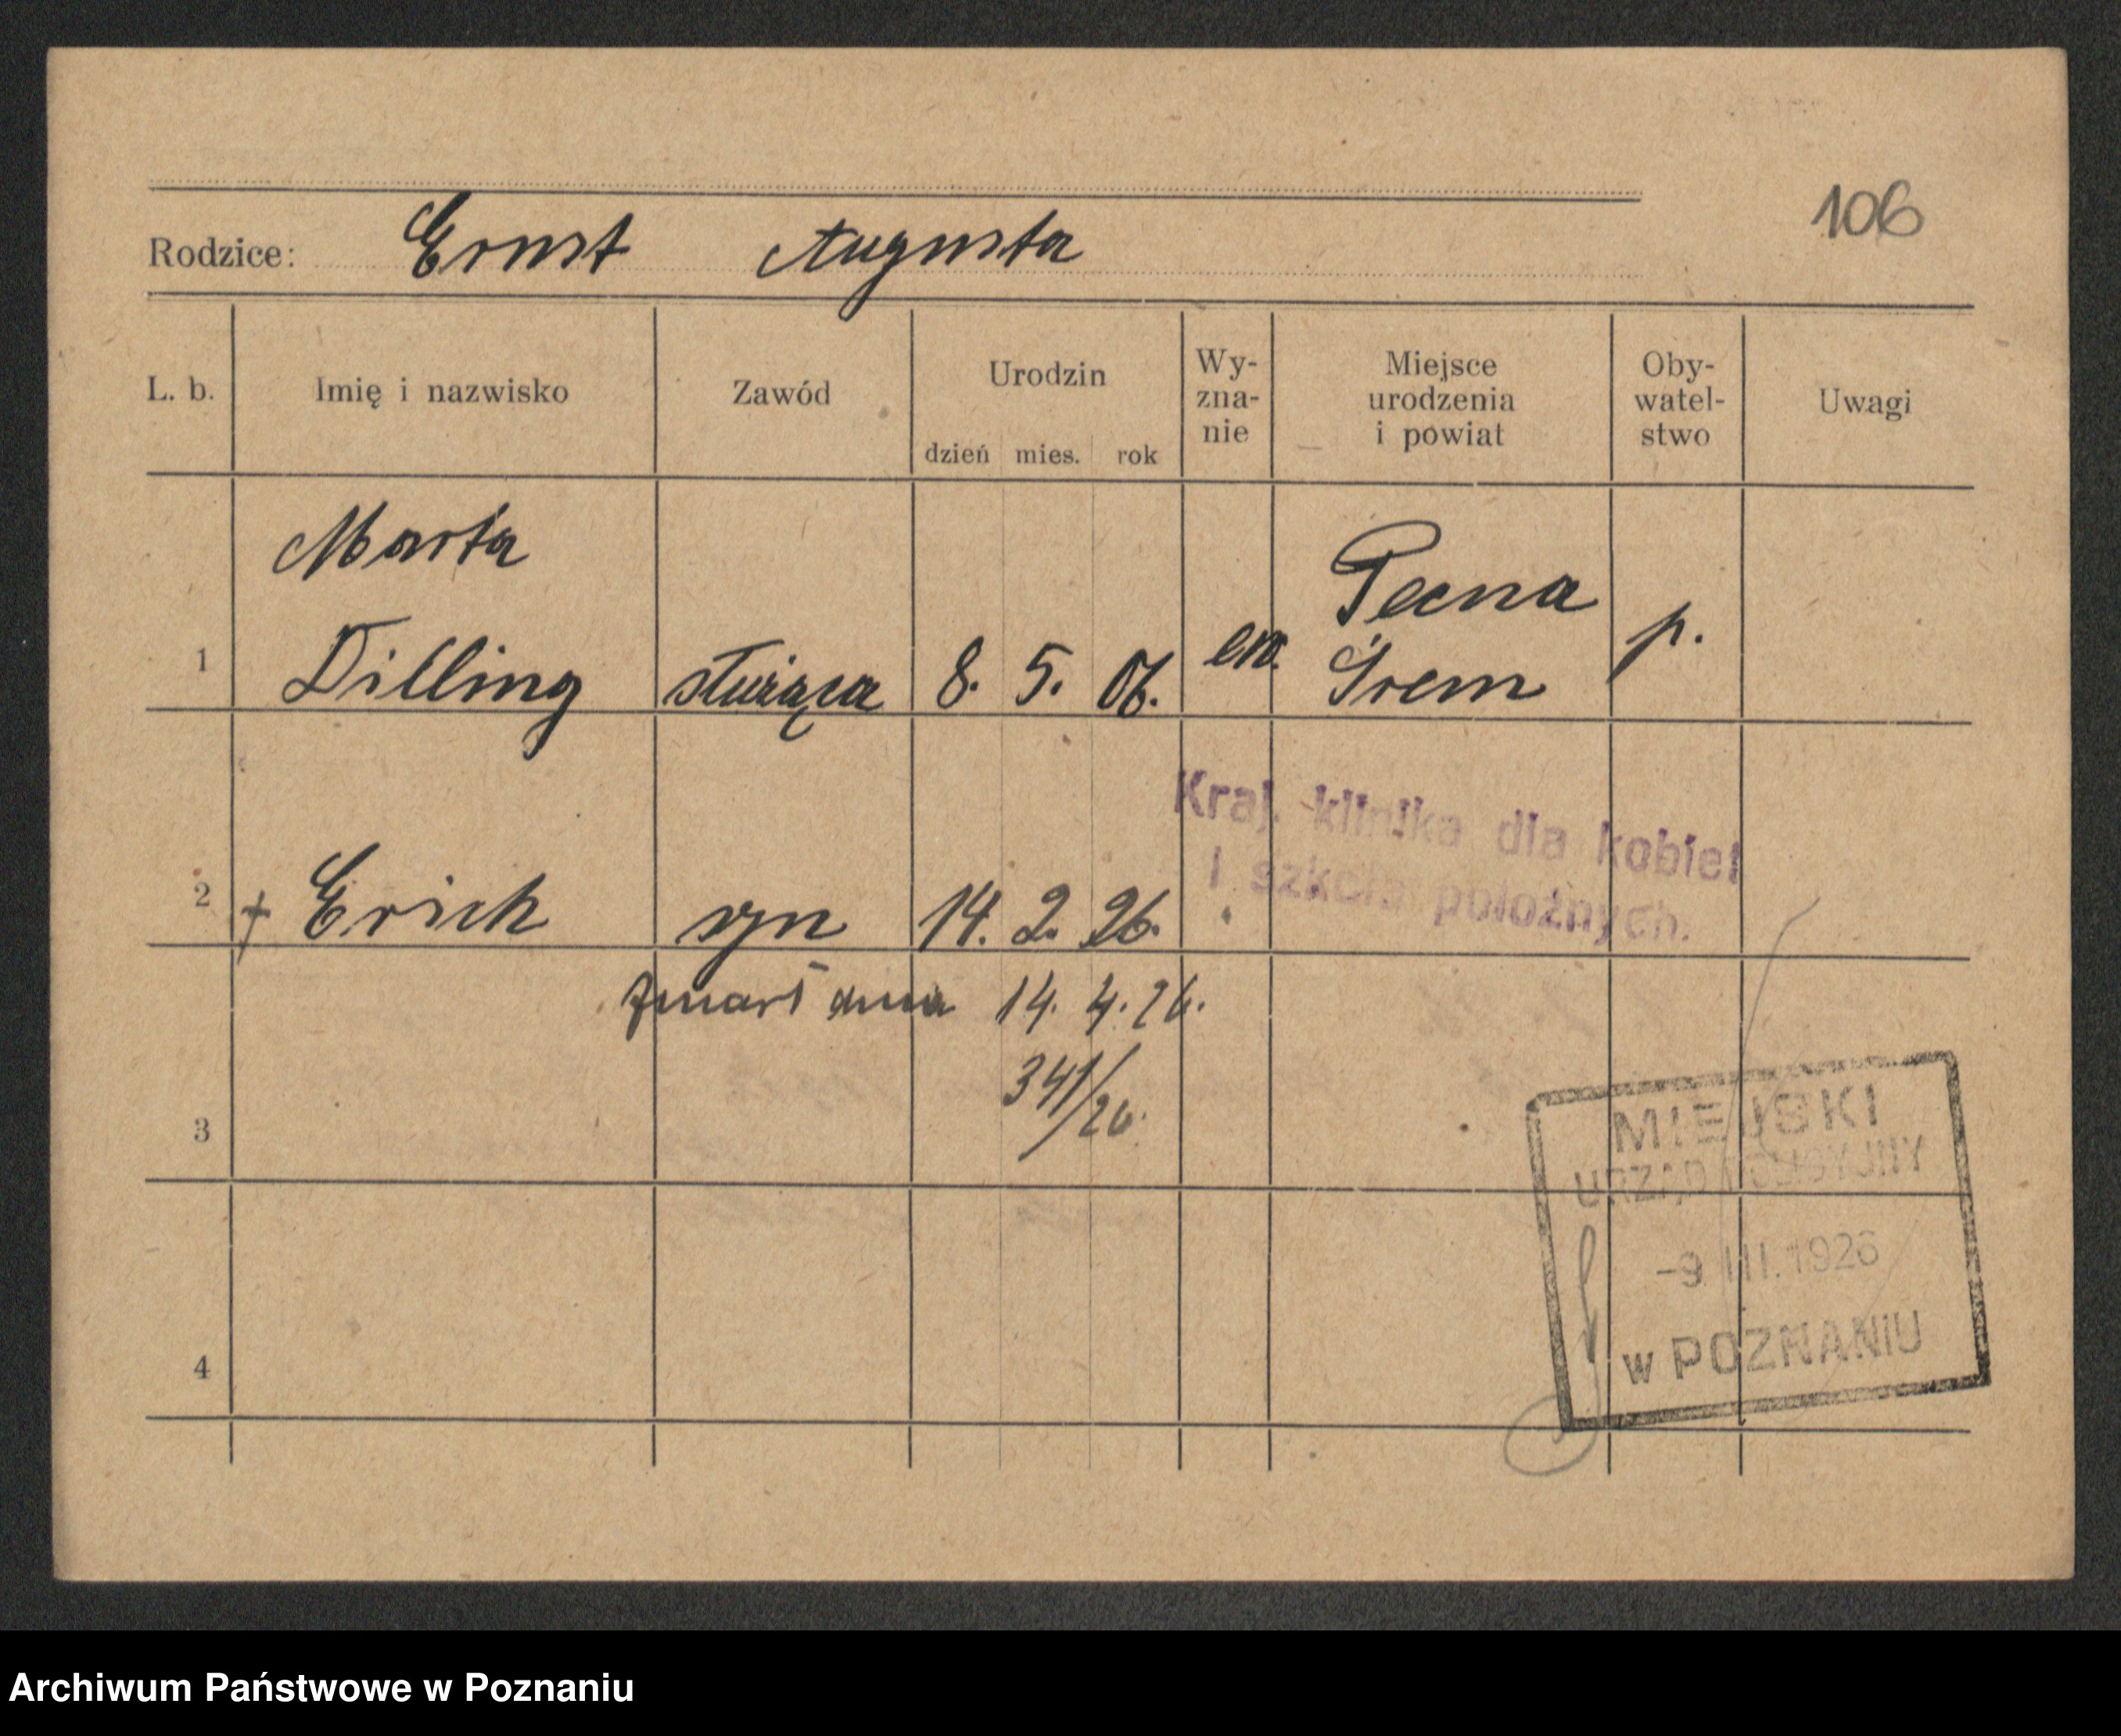 106
Rodzice: Ernst Augusta
L. b. Imię i nazwisko Zawód Urodzin dzień mies. rok Wy-zna-nie Miejsce urodzenia i powiat Oby-watel-stwo Uwagi
Marta Pecna
1 Dilling służąca 8. 5. 06. ew. Śrem p.
Kraj. klinika dla kobiet
i szkoła położnych.
2 † Erich syn 14. 2. 26.
zmarł dnia 14. 4. 26.
341/26.
3
MIEJSKI
URZĄD POLICYJNY
-9 III. 1926
w POZNANIU
4
Archiwum Państwowe w Poznaniu